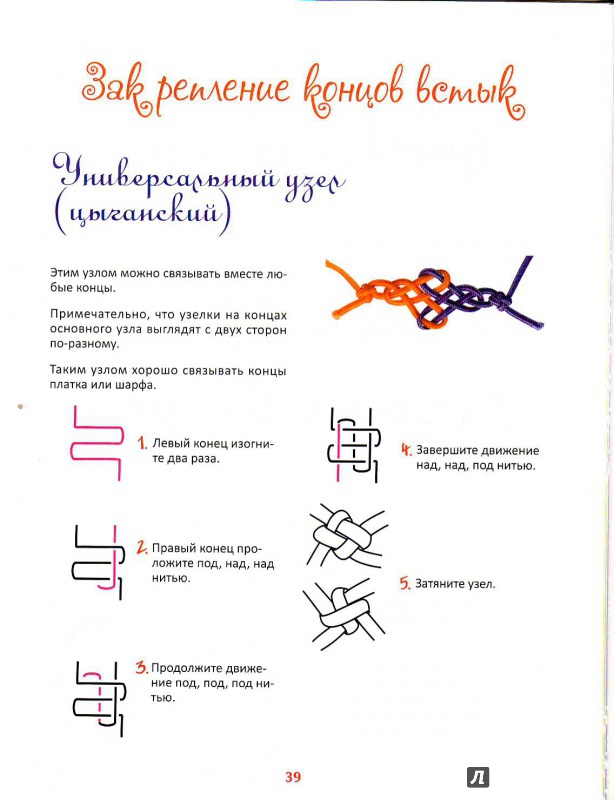 Закрепление концов встык
Универсальный узел
(цыганский)
Этим узлом можно связывать вместе лю-
бые концы.
Примечательно, что узелки на концах
основного узла выглядят с двух сторон
по-разному.
Таким узлом хорошо связывать концы
платка или шарфа.
1. Левый конец изогни-
те два раза.
2. Правый конец про-
ложите под, над, над
нитью.
3. Продолжите движе-
ние под, под, под ни-
тью.
4. Завершите движение
над, над, под нитью.
5. Затяните узел.
39
Л